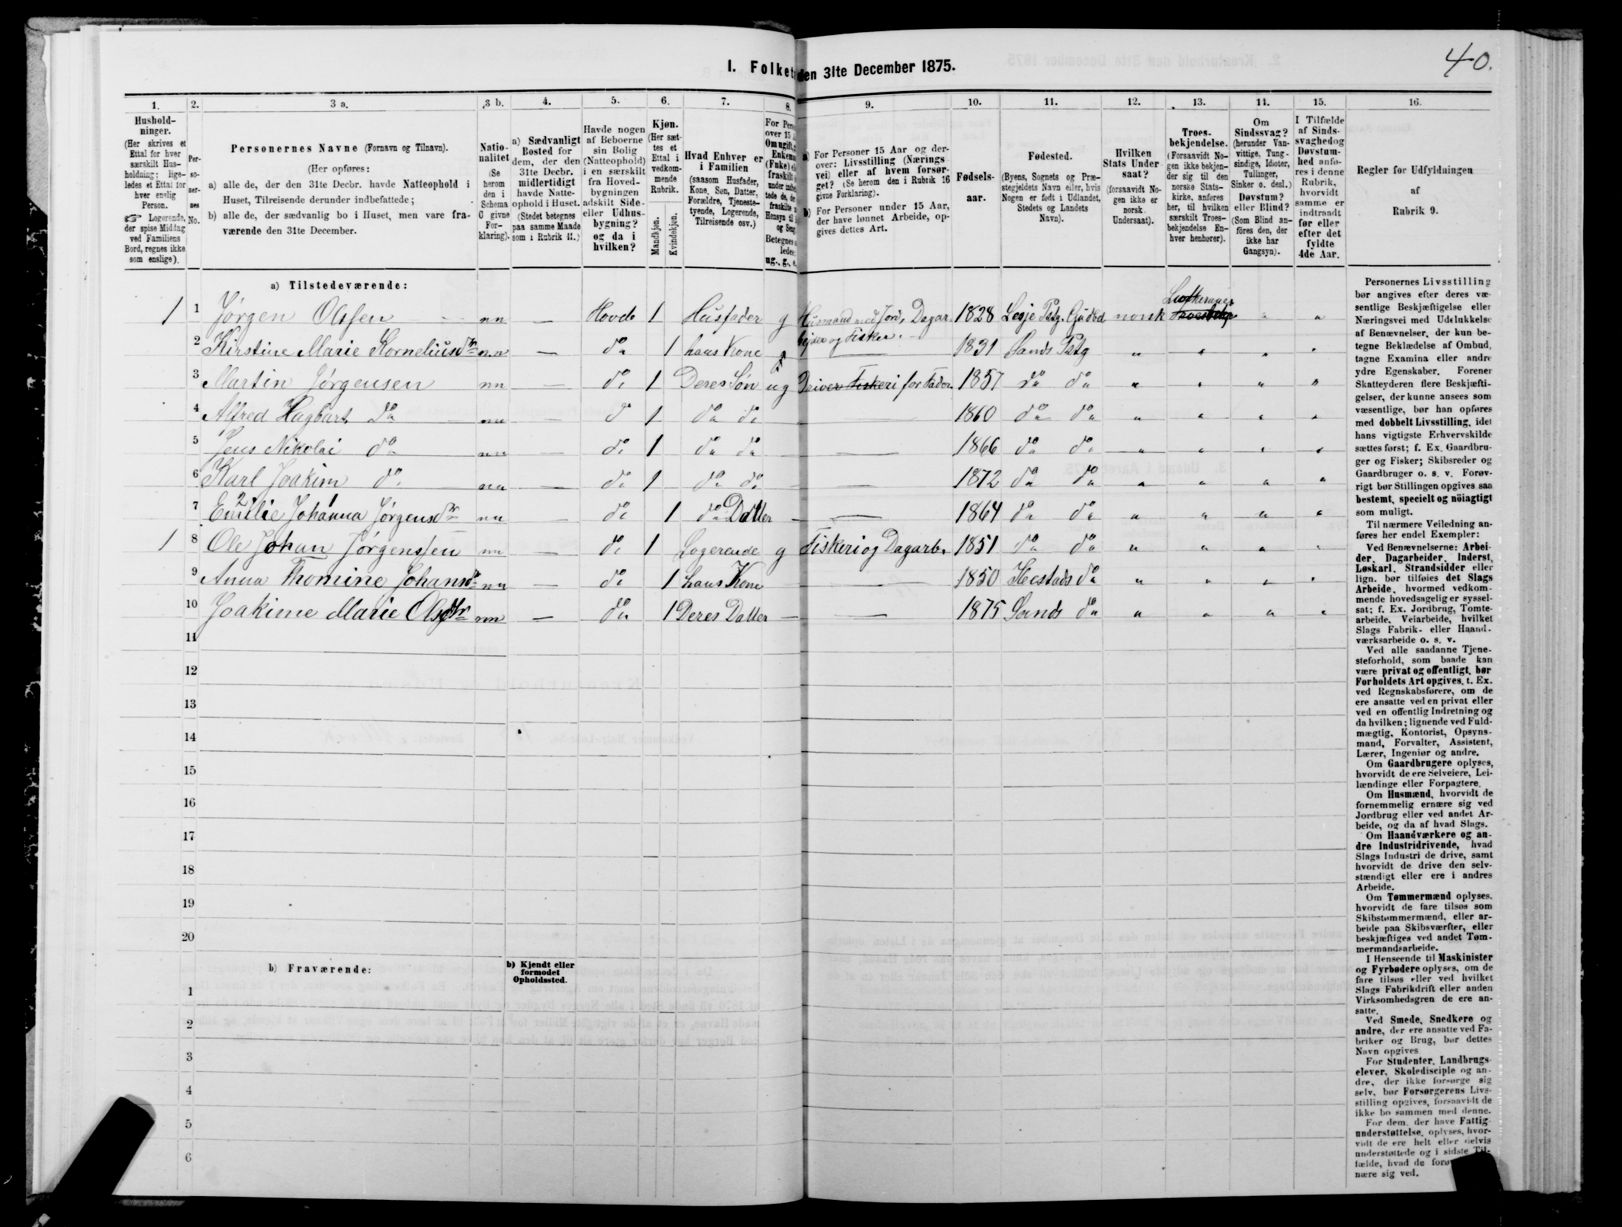 40.
I. Folket
den 31te December 1875.
1. 2. 3 a. 3 b. 4. 5. 6. 7. 8. 9. 10. 11. 12. 13. 14. 15. 16.
Hushold-
ninger.
(Her skrives et
Ettal for hver
særskilt Hus-
holdning; lige-
ledes et Ettal for
hver enslig
Person.
☞ Logerende,
der spise Middag
ved Familiens
Bord, regnes ikke
som enslige).
Per-
so-
ner-
nes
No.
Personernes Navne (Fornavn og Tilnavn).
(Her opføres:
a) alle de, der den 31te Decbr. havde Natteophold i
Huset, Tilreisende derunder indbefattede;
b) alle de, der sædvanlig bo i Huset, men vare fra-
værende den 31te December.
Natio-
nalitet
(Se
herom
den i
Schema
C givne
For-
klaring).
a) Sædvanligt
Bosted for
dem, der den
31te Decbr.
midlertidigt
havde Natte-
ophold i Huset.
(Stedet betegnes
paa samme Maade
som i Rubrik 11.)
Havde nogen
af Beboerne
sin Bolig
(Natteophold)
i en særskilt
fra Hoved-
bygningen
adskilt Side-
eller Udhus-
bygning?
og da i
hvilken?
Kjøn.
(Her sæt-
tes et
Ettal i
vedkom-
mende
Rubrik.
Mandkjøn.
Kvindekjøn.
Hvad Enhver er
i Familien
(saasom Husfader,
Kone, Søn, Datter,
Forældre, Tjeneste-
tyende, Logerende,
Tilreisende osv.)
a) For Personer 15 Aar og der-
over: Livsstilling (Nærings-
vei) eller af hvem forsør-
get? (Se herom den i Rubrik 16
givne Forklaring).
b) For Personer under 15 Aar,
der have lønnet Arbeide, op-
gives dettes Art.
Fødsels-
aar.
Fødested.
(Byens, Sognets og Præ-
stegjeldets Navn eller, hvis
Nogen er født i Udlandet,
Stedets og Landets
Navn).
Hvilken
Stats Under
saat?
(forsaavidt No-
gen ikke er
norsk
Undersaat).
Troes-
bekjendelse.
(Forsaavidt No-
gen ikke bekjen-
der sig til den
norske Stats-
kirke, anføres
her, til hvilken
særskilt Troes-
bekjendelse En-
hver henhører).
Om
Sindssvag?
(herunder Van-
vittige, Tung-
sindige, Idioter,
Tullinger,
Sinker o. desl.)
Døvstum?
eller Blind?
(Som Blind an-
føres den, der
ikke har
Gangsyn).
I Tilfælde
af Sinds-
svaghed og
Døvstum-
hed anfø-
res i denne
Rubrik,
hvorvidt
samme er
indtraadt
før eller
efter det
fyldte
4de Aar.
Regler for Udfyldningen
af
Rubrik 9.
a) Tilstedeværende:
1 1 Jørgen Olssen nn — Hovdb 1 Husfader g Husmand med Jord, Dagar 1828 Lesje Pstg. norsk
beider og Fisker.
2 Kirstine Marie Korneliusdtr nn — do 1 hans Kone g 1831 Sands Pstg „ „ „ „
3 Martin Jørgensen nn — do 1 Deres Søn ug Driver Fiskeri for Faderen 1857 do do „ „ „ „
4 Alfred Hagbart do nn — do 1 do do — 1860 do do „ „ „ „
5 Jens Nikolai do nn — do 1 do do — 1866 do do „ „ „ „
6 Karl Joakim do nn — do 1 do do — 1872 do do „ „ „ „
7 Emilie Johanna Jørgensdtr nn — do 1 do Datter — 1864 do do „ „ „ „
1 8 Ole Johan Jørgenssen nn — do 1 Logerende g Fiskeri og Dagarb. 1851 do do „ „ „ „
9 Anna Thomine Johansdtr nn — do 1 hans Kone — 1850 do „ „ „ „
10 Joakime Marie Olsdtr nn — do 1 Deres Datter — 1875 Sands do „ „ „ „
11
12
13
14
15
16
17
18
19
20
b) Fraværende:
b) Kjendt eller
formodet
Opholdssted.
1
2
3
4
5
6
Personernes Livsstilling
bør angives efter deres væ-
sentlige Beskjæftigelse eller
Næringsvei med Udelukkelse
af Benævnelser, der kun be-
tegne Beklædelse af Ombud,
tagne Examina eller andre
ydre Egenskaber. Forener
Skatteyderen flere Beskjæfti-
gelser, der kunne ansees som
væsentlige, bør han opføres
med dobbelt Livsstilling, idet
hans vigtigste Erhvervskilde
sættes først; f. Ex. Gaardbru-
ger og Fisker; Skibsreder og
Gaardbruger o. s. v. Forøv-
rigt bør Stillingen opgives saa
bestemt, specielt og nöiagtigt
som muligt.
Til nærmere Veiledning an-
føres her endel Exempler:
Ved Benævnelserne: Arbei-
der, Dagarbeider, Inderst,
Løskarl, Strandsidder eller
lign. bør tilføies det Slags
Arbeide, hvormed vedkom-
mende hovedsagelig er syssel-
sat; f. Ex. Jordbrug, Tomte-
arbeide, Veiarbeide, hvilket
Slags Fabrik- eller Haand-
værksarbeide o. s. v.
Ved alle saadanne Tjene-
steforhold, som baade kan
være privat og offentligt, bør
Forholdets Art opgives, t. Ex.
ved Regnskabsførere, om de
ere ansatte ved en privat eller
ved en offentlig Indretning og
da hvilken; lignende ved Fuld-
mægtig, Kontorist, Opsyns-
mand, Forvalter, Assistent,
Lærer, Ingeniør og andre.
Om Gaardbrugere oplyses,
hvorvidt de ere Selveiere, Lei-
lændinge eller Forpagtere.
Om Husmænd, hvorvidt de
fornemmelig ernære sig ved
Jordbrug eller ved andet Ar-
beide, og da af hvad Slags.
Om Haandværkere og an-
dre Industridrivende, hvad
Slags Industri de drive, samt
hvorvidt de drive den selv-
stændigt eller ere i andres
Arbeide.
Om Tømmermænd oplyses,
hvorvidt de fare tilsøs som
Skibstømmermænd, eller ar-
beide paa Skibsværfter, eller
beskjæftiges ved andet Tøm-
mermandsarbeide.
I Henseende til Maskinister
og Fyrbødere oplyses, om de
fare tilsøs eller ved hvilket
Slags Fabrikdrift eller anden
Virksomhedsgren de ere an-
satte.
Ved Smede, Snedkere og
andre, der ere ansatte ved Fa-
briker og Brug, bør dettes
Navn opgives
For Studenter, Landbrugs-
elever, Skoledisciple og an-
dre, der ikke forsørge sig
selv, bør Forsørgerens Livs-
stilling opgives, forsaavidt de
ikke bo sammen med denne.
For dem, der have Fattig
understøttelse, oplyses, hvor-
vidt de ere helt eller delvis
understøttede og i sidste Til-
fælde, hvad de
nære sig ved.